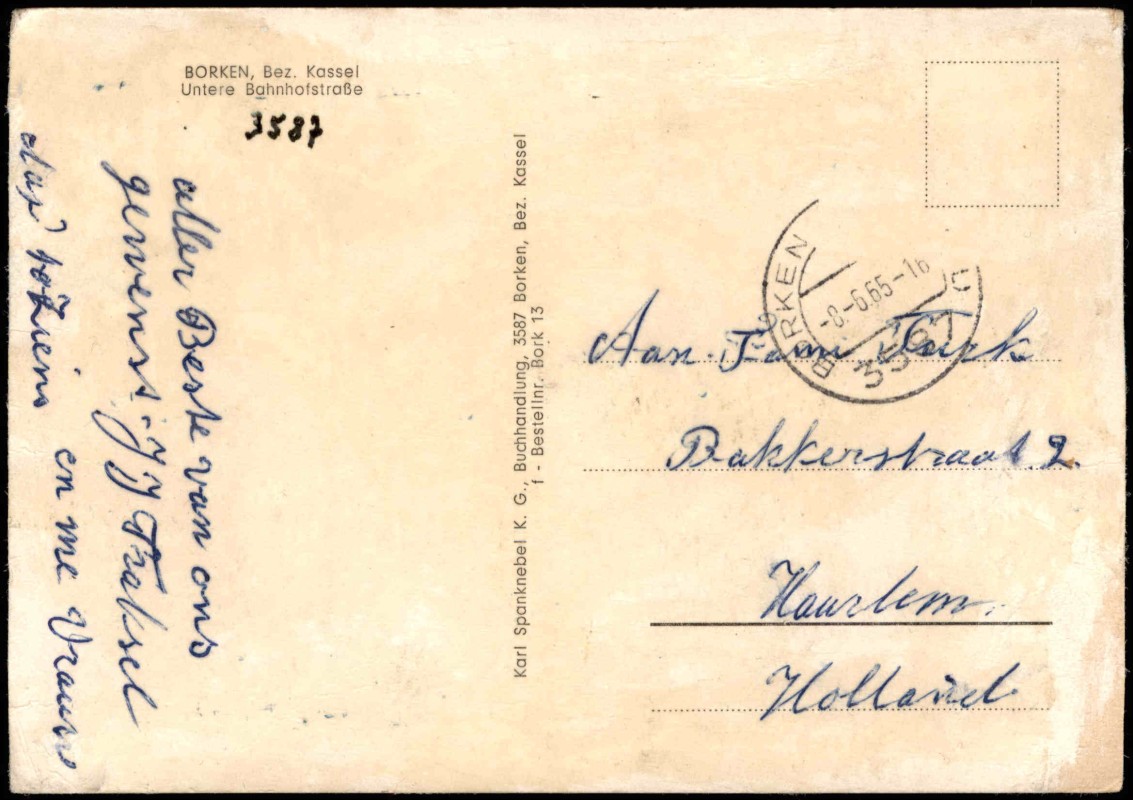 BORKEN, Bez. Kassel
Untere Bahnhofstraße
3587
aller Beste van ons
gewenst. J J Traksel
en me Vrouw
totziens
Karl Spanknebel K. G., Buchhandlung, 3587 Borken, Bez. Kassel
f - Bestellnr. Bork 13
BORKEN
-8.-6.65-16
3587
Aan Fam Turk
Bakkerstraat 2.
Haarlem.
Holland